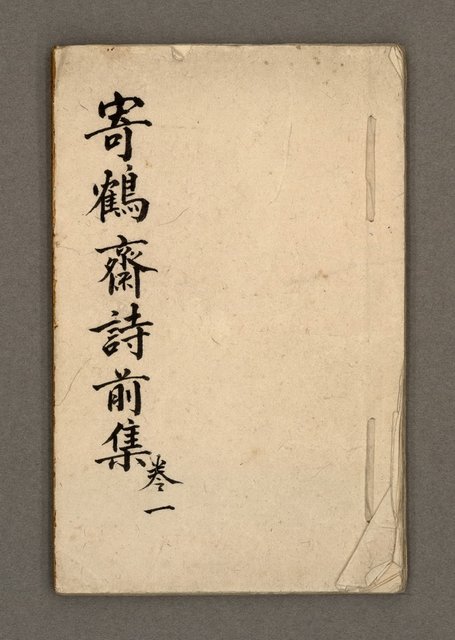 寄鶴齋詩前集
卷一